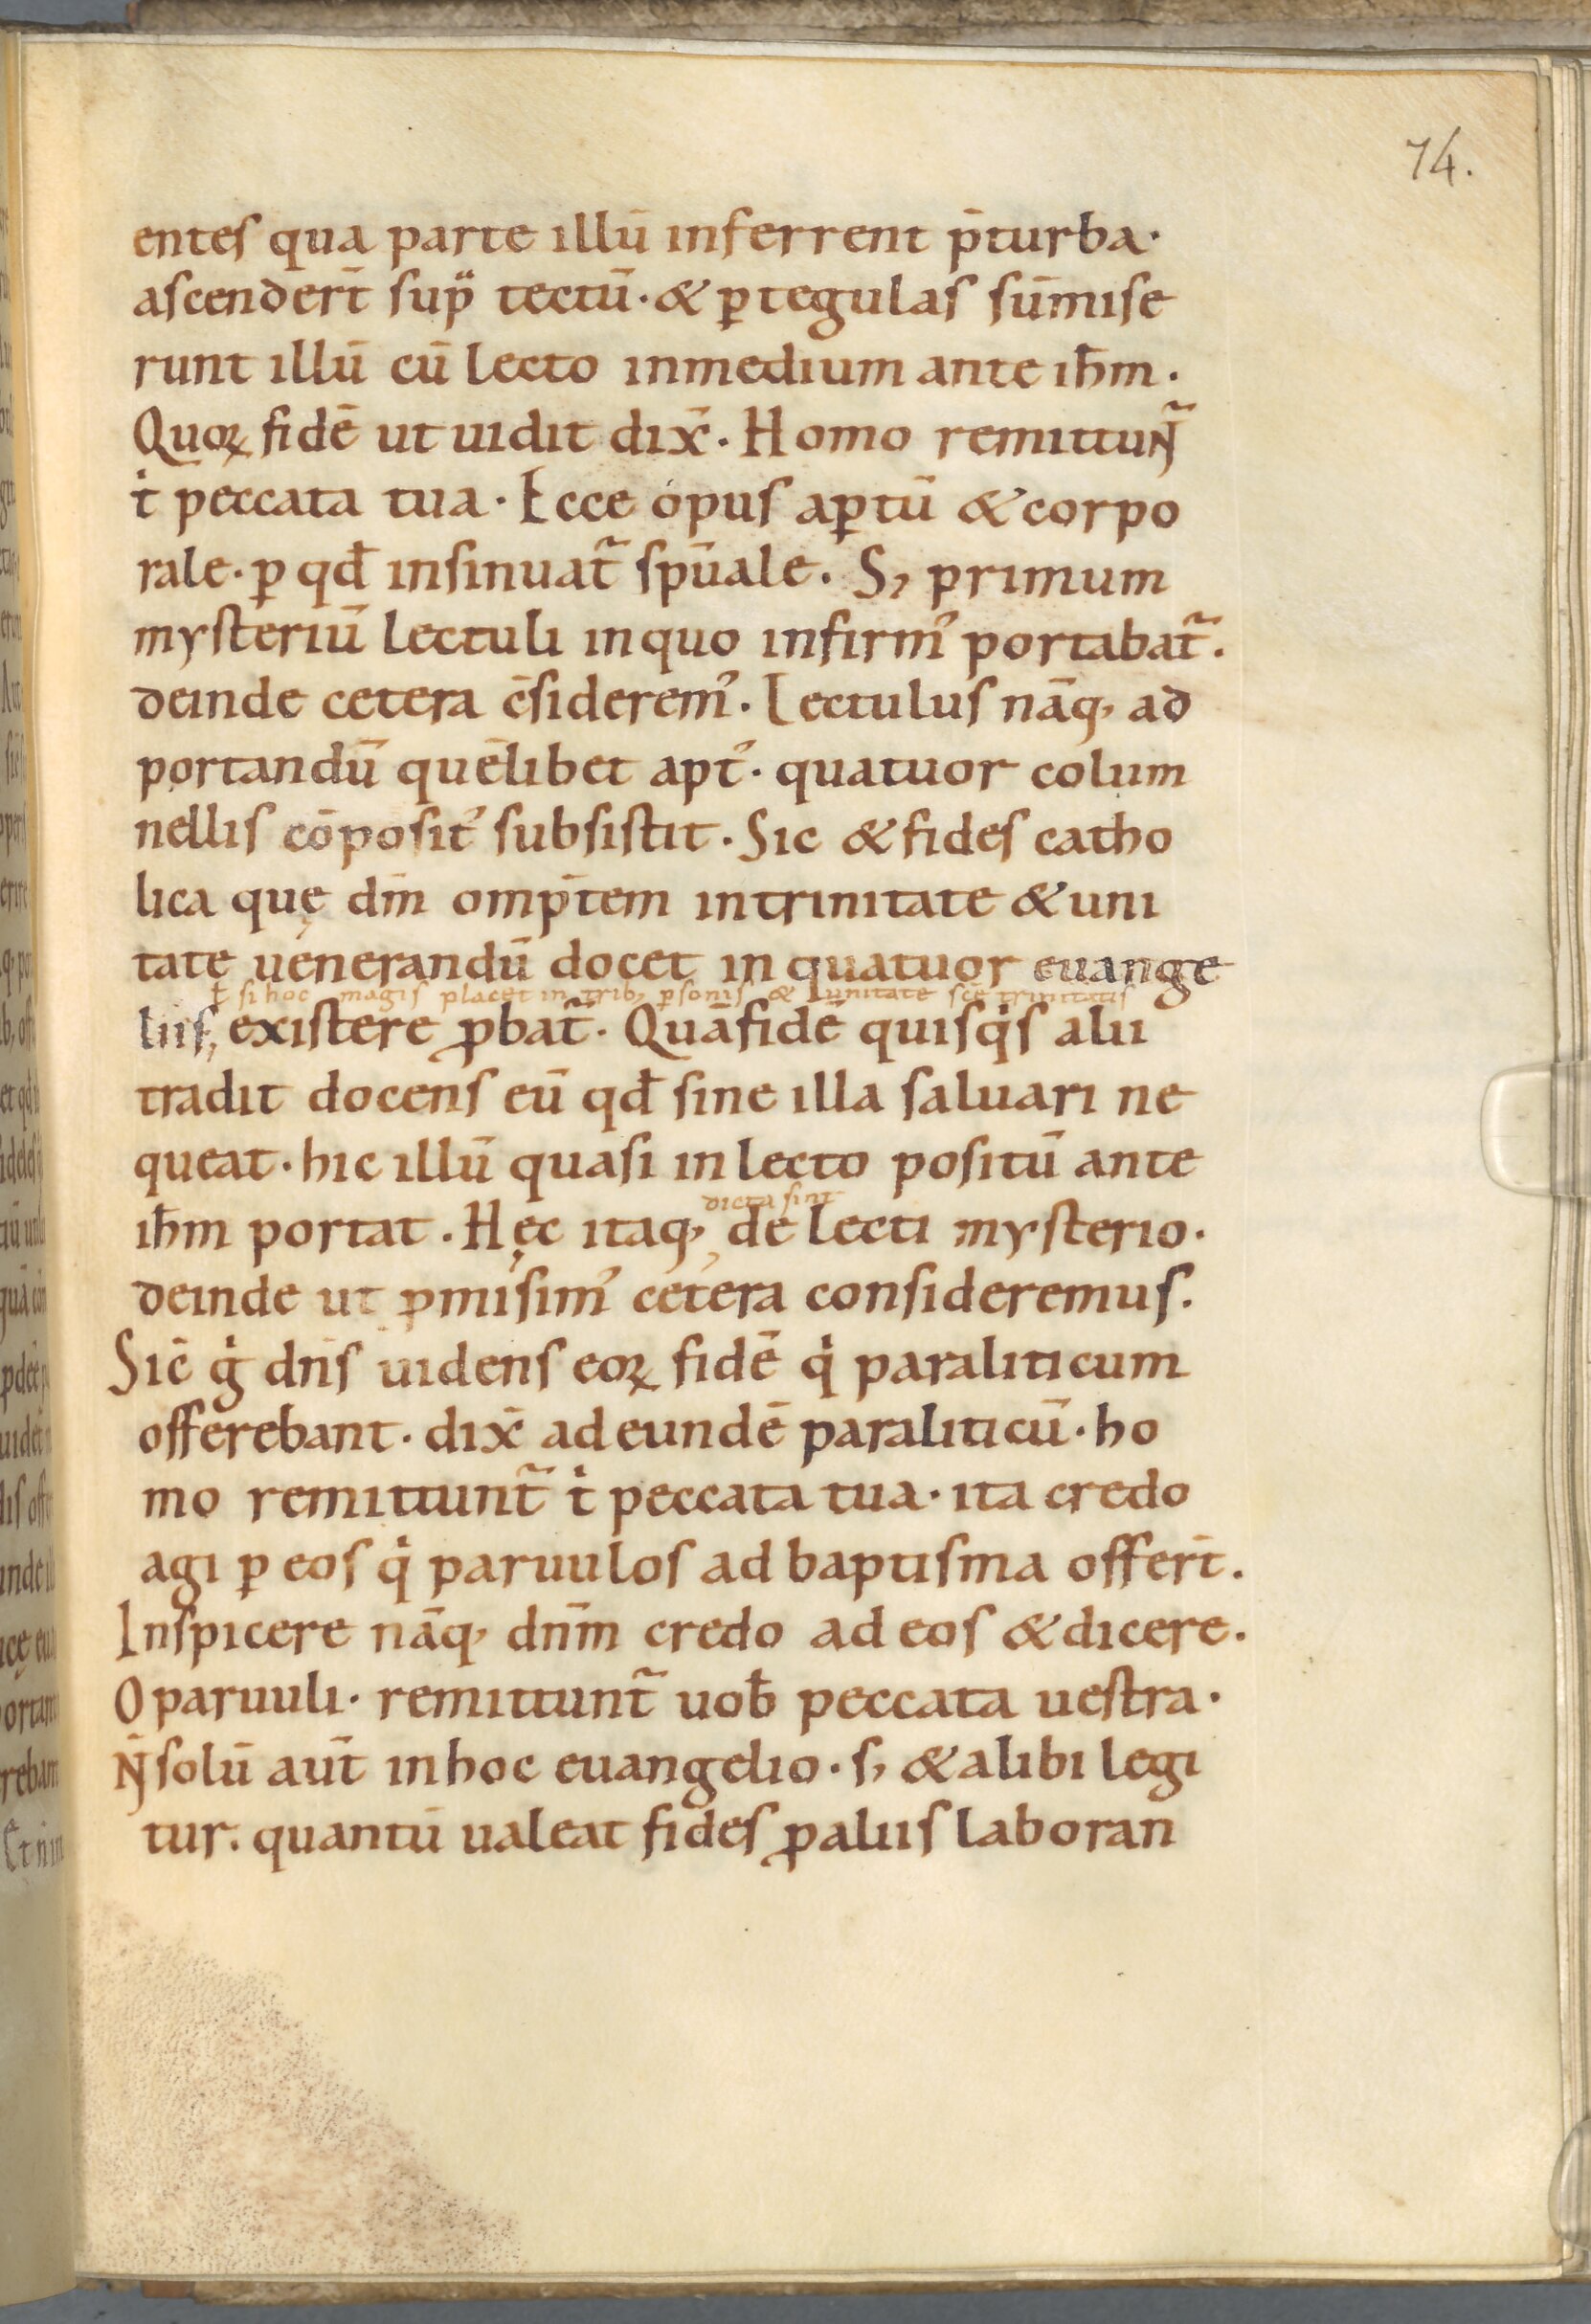 74.
entes qua parte illū inferrent p̄turba·
ascendert̄ sup̈ tectū·& ꝑtegulas sūmise
runt illū cū lecto inmedium ante ihm̄·
Quoꝝ fidē ut uidit dix̄· Homo remittunt᷑
t̓ peccata tua· Ecce opus aꝑtū & corpo
rale·ꝑ qđ insinuat᷑ spūale· S; primum
mysteriū lectuli inquo infirmꝰ portabat᷑·
deinde cetera c̄sideremꝰ· Lectulus nāq; ad
portandū quēlibet aptꝰ· quatuor colum
nellis cōpositꝰ subsistit· Sic & fides catho
lica quę dm̄ omp̄tem intrinitate & uni
tate uenerandū docet in quatuor euange
ł si hoc magis placet in trib; ꝑsonis & unitate scē trinitatis
liis, existere ꝓbat᷑· Quāfidē quisqͥs alii
tradit docens eū qđ sine illa saluari ne
queat· hic illū quasi in lecto positū ante
dicta sint
ihm̄ portat· Hęc itaq; de lecti mysterio·
deinde ut p̄misimꝰ cetera consideremus·
Sic̄ gͥ dn̄s uidens eoꝝ fidē qͥ paraliticum
offerebant· dix̄ ad eundē paraliticū· ho
mo remittunt᷑ t̓ peccata tua· ita credo
agi ꝑ eos qͥ paruulos ad baptisma offert̄·
Inspicere nāq; dnm̄ credo ad eos & dicere·
O paruuli· remittunt᷑ uob̄ peccata uestra·
N̄ solū aut̄ inhoc euangelio· s; & alibi legi
tur· quantū ualeat fides ꝓaliis laboran